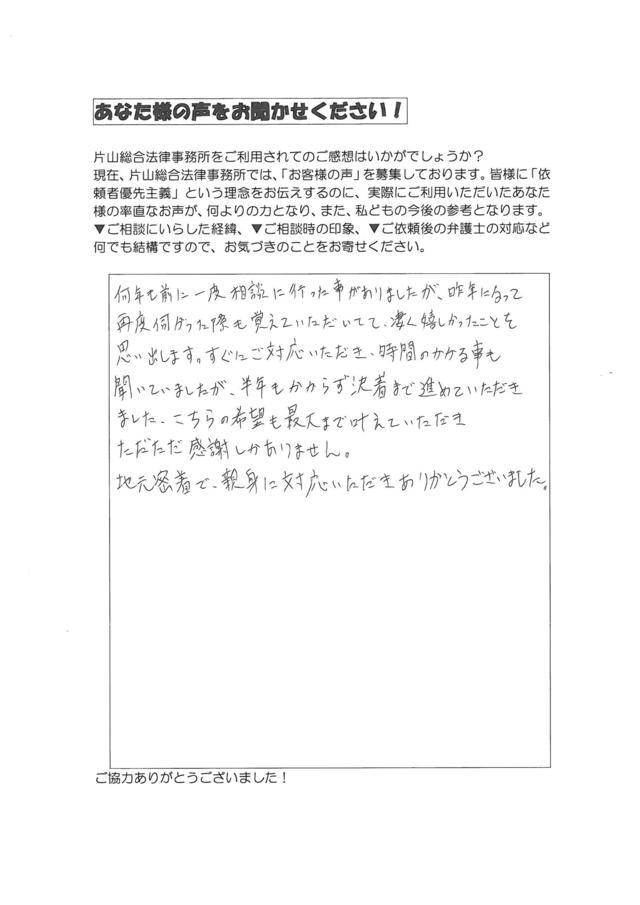 あなた様の声をお聞かせください！
片山総合法律事務所をご利用されてのご感想はいかがでしょうか？
現在、片山総合法律事務所では、「お客様の声」を募集しております。皆様に「依
頼者優先主義」という理念をお伝えするのに、実際にご利用いただいたあなた
様の率直なお声が、何よりの力となり、また、私どもの今後の参考となります。
▼ご相談にいらした経緯、▼ご相談時の印象、▼ご依頼後の弁護士の対応など
何でも結構ですので、お気づきのことをお寄せください。
何年も前に一度相談に行った事がありましたが、昨年になって
再度伺がった際も覚えていただいてて、凄く嬉しかったことを
思い出します。すぐにご対応いただき、時間のかかる事も
聞いていましたが、半年もかからず決着まで進めていただき
ました。こちらの希望も最大まで叶えていただき
ただただ感謝しかありません。
地元密着で、親身に対応いただきありがとうございました。
ご協力ありがとうございました！